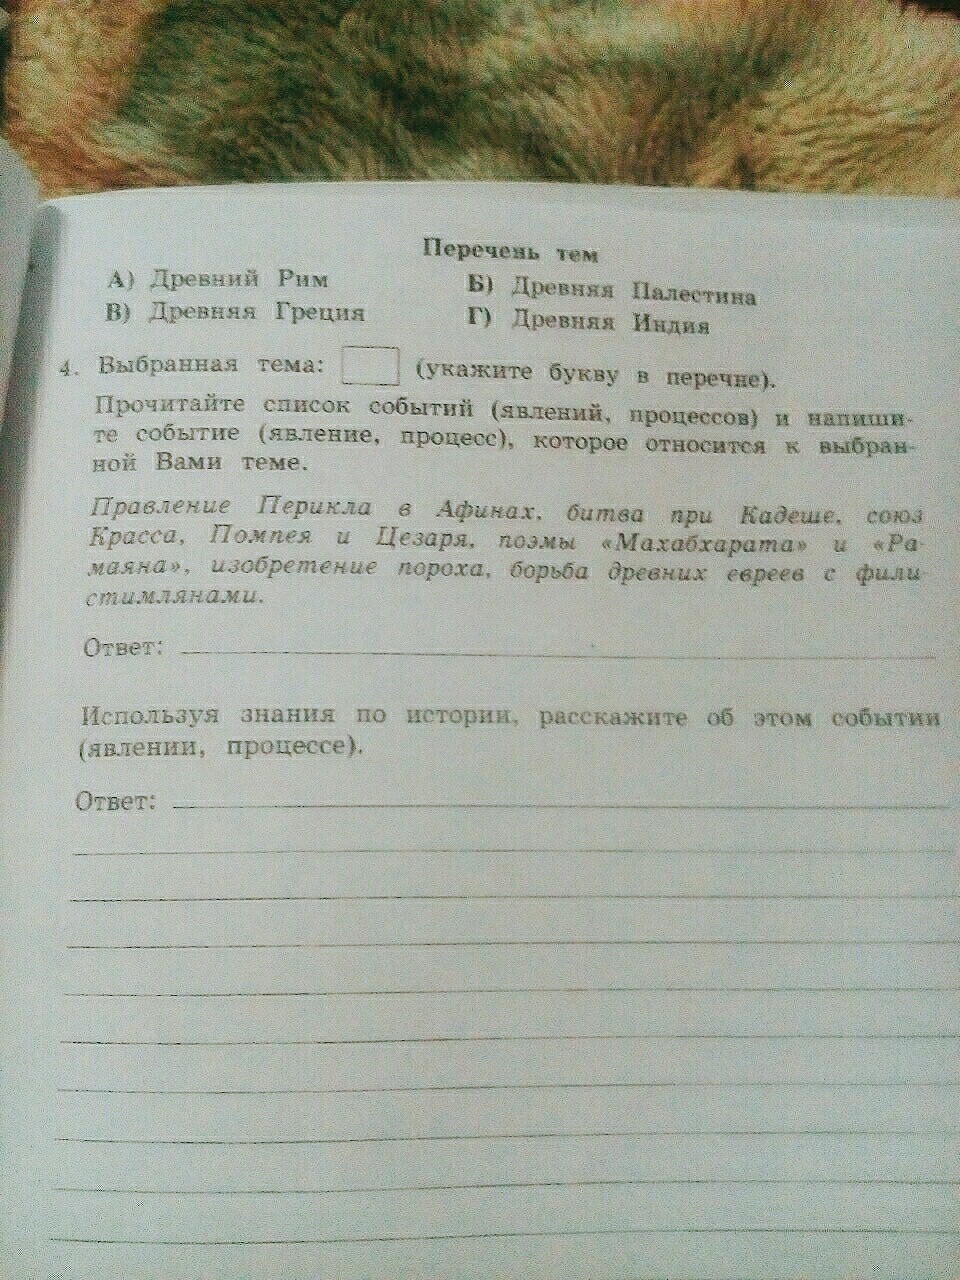 Перечень тем
А) Древний Рим Б) Древняя Палестина
В) Древняя Греция Г) Древняя Индия
4. Выбранная тема: (укажите букву в перечне).
Прочитайте список событий (явлений, процессов) и напиши-
те событие (явление, процесс), которое относится к выбран-
ной Вами теме.
Правление Перикла в Афинах, битва при Кадеше, союз
Красса, Помпея и Цезаря, поэмы «Махабхарата» и «Ра-
маяна», изобретение пороха, борьба древних евреев с фили-
стимлянами.
Ответ:
Используя знания по истории, расскажите об этом событии
(явлении, процессе).
Ответ: